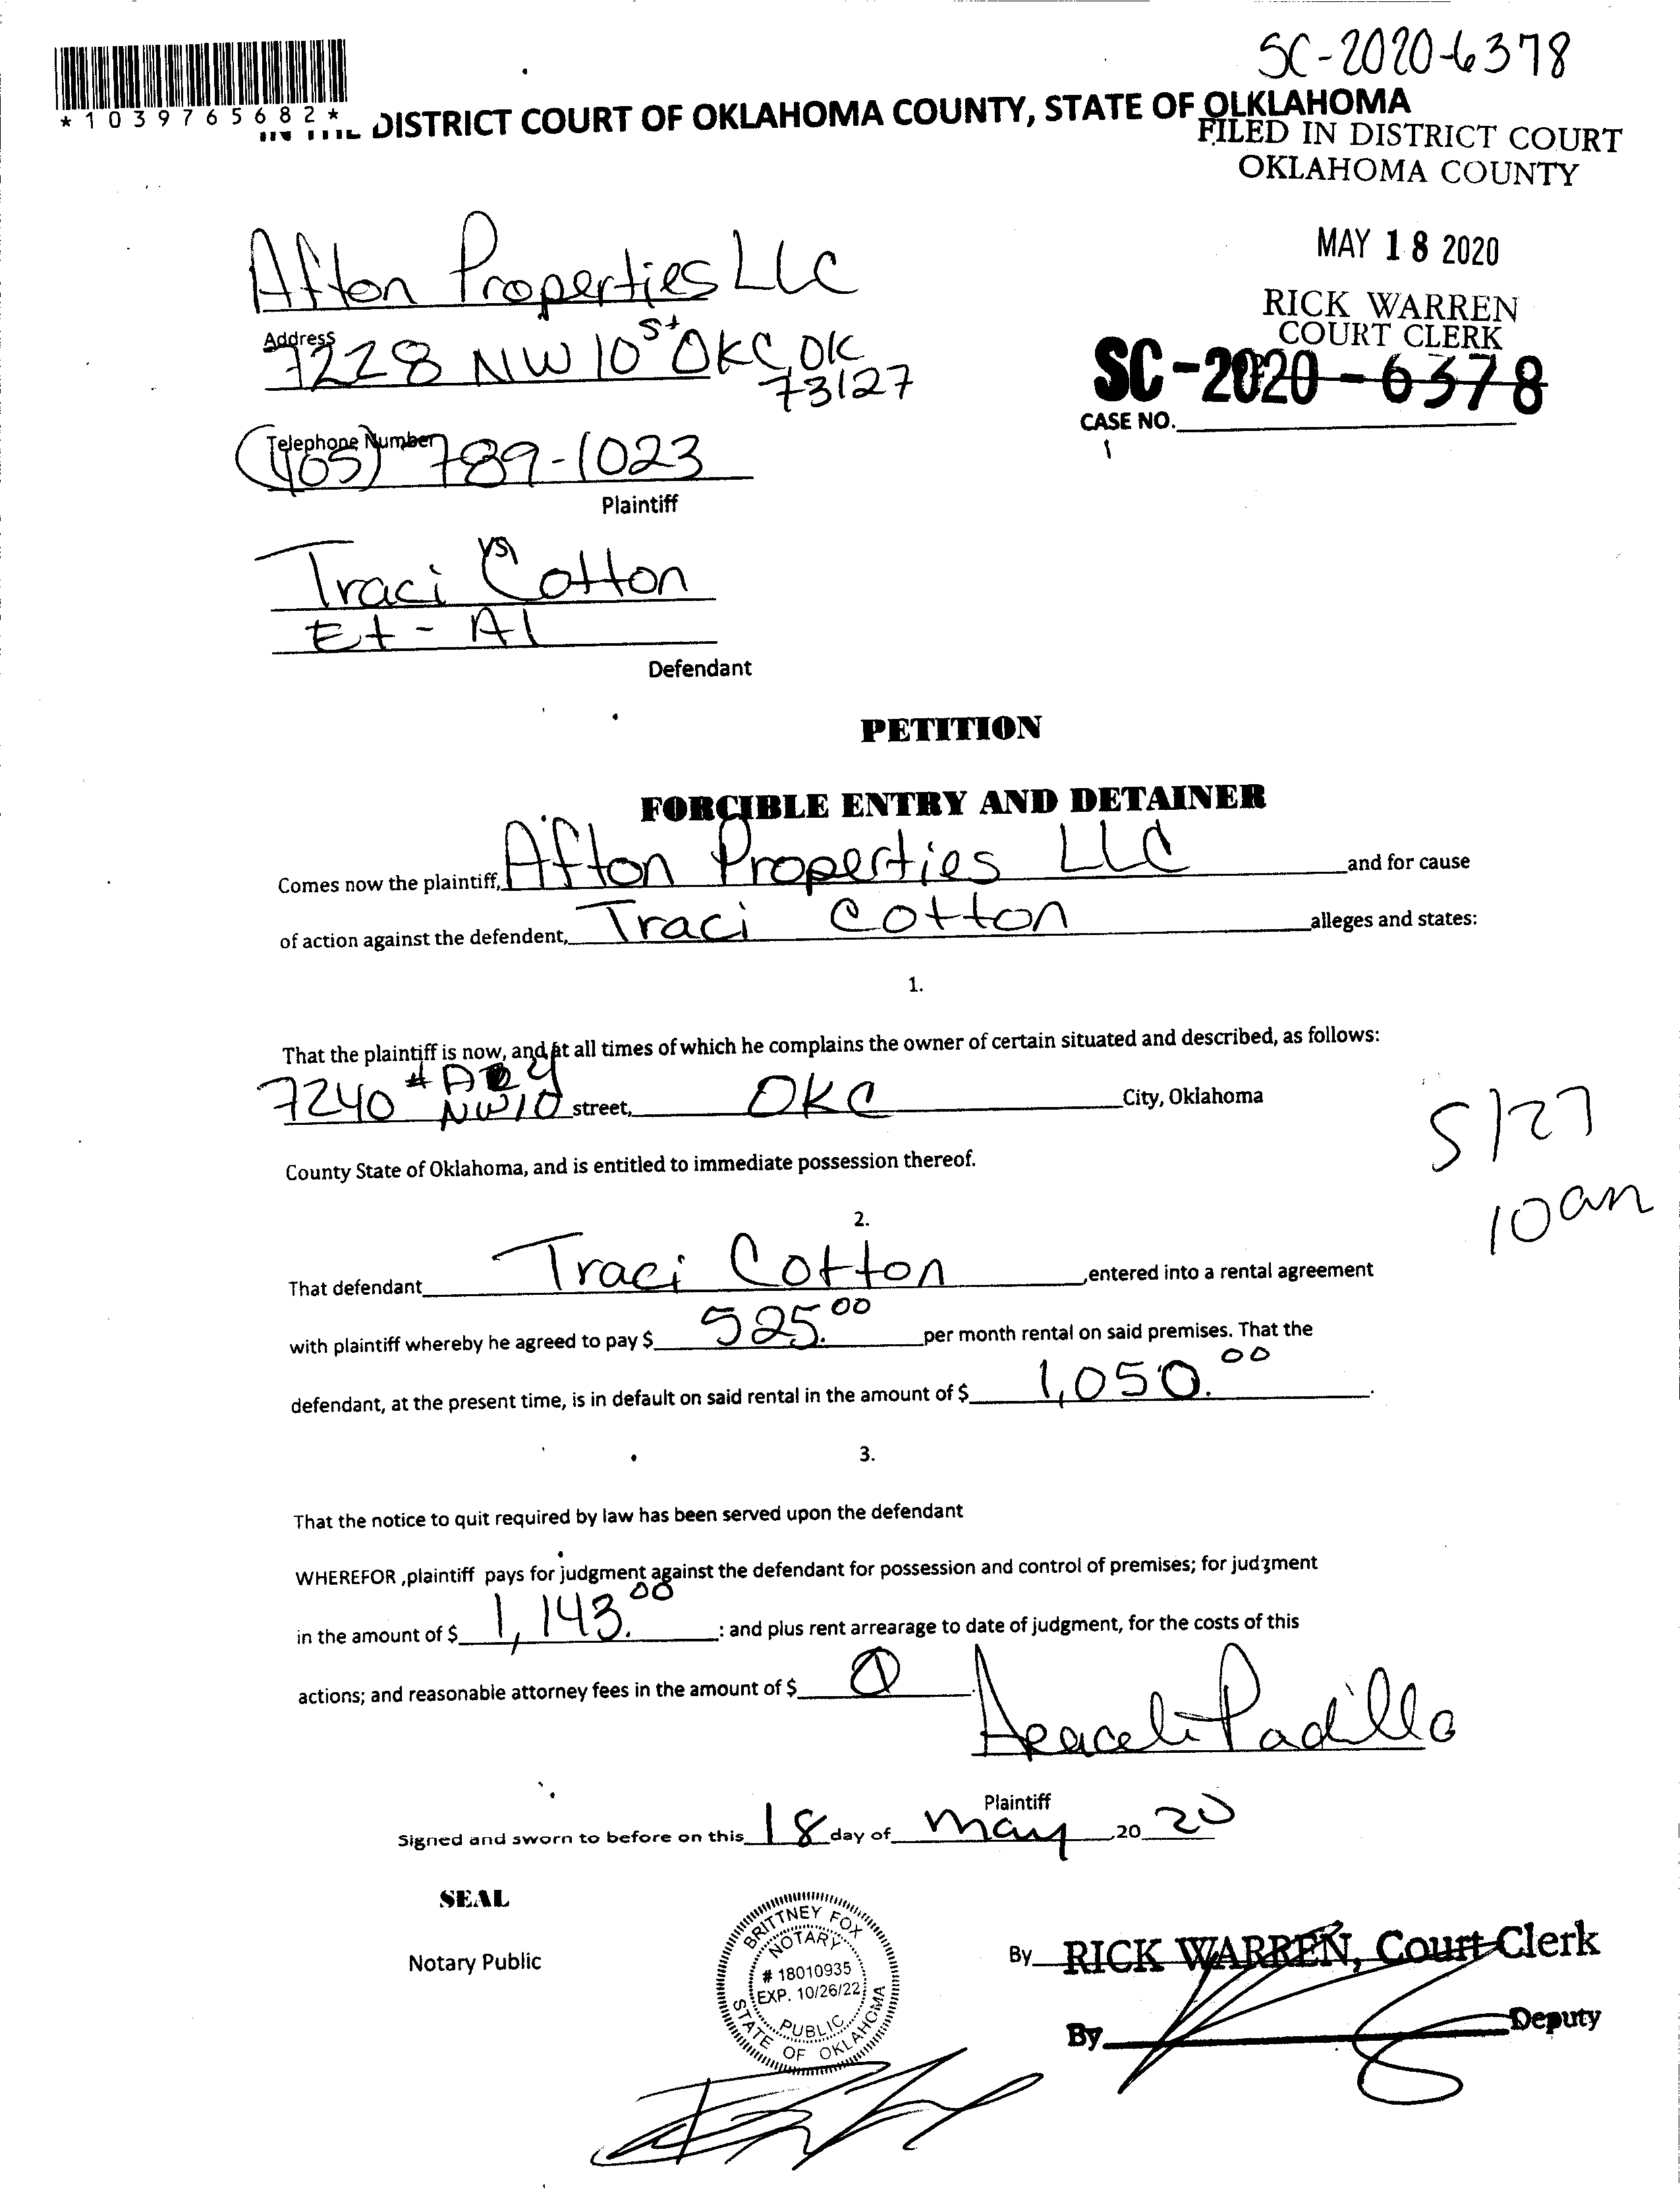 SC-2020-6378
*1039765682*
IN THE DISTRICT COURT OF OKLAHOMA COUNTY, STATE OF OLKLAHOMA
FILED IN DISTRICT COURT
OKLAHOMA COUNTY
MAY 18 2020
RICK WARREN
COURT CLERK
SC-2020-6378
CASE NO.
Afton Properties LLC
Address
7228 NW 10 St OKC, OK
73127
Telephone Number
(405) 789-1023
Plaintiff
vs
Traci Cotton
Et-Al
Defendant
PETITION
FORCIBLE ENTRY AND DETAINER
Comes now the plaintiff, Afton Properties LLC and for cause
of action against the defendent, Traci Cotton alleges and states:
1.
That the plaintiff is now, and at all times of which he complains the owner of certain situated and described, as follows:
7240 NW 10 street, OKC City, Oklahoma
5/27
10am
County State of Oklahoma, and is entitled to immediate possession thereof.
2.
That defendant Traci Cotton ,entered into a rental agreement
with plaintiff whereby he agreed to pay $ 525.00 per month rental on said premises. That the
defendant, at the present time, is in default on said rental in the amount of $ 1,050.00.
3.
That the notice to quit required by law has been served upon the defendant
WHEREFOR ,plaintiff pays for judgment against the defendant for possession and control of premises; for judgment
in the amount of $ 1,143.00 : and plus rent arrearage to date of judgment, for the costs of this
actions; and reasonable attorney fees in the amount of $
Araceli Padilla
Plaintiff
Signed and sworn to before on this 18 day of May ,20 20
SEAL
Notary Public
BRITTNEY FOX
NOTARY
# 18010935
EXP. 10/26/22
PUBLIC
STATE OF OKLAHOMA
By RICK WARREN, Court Clerk
By Deputy